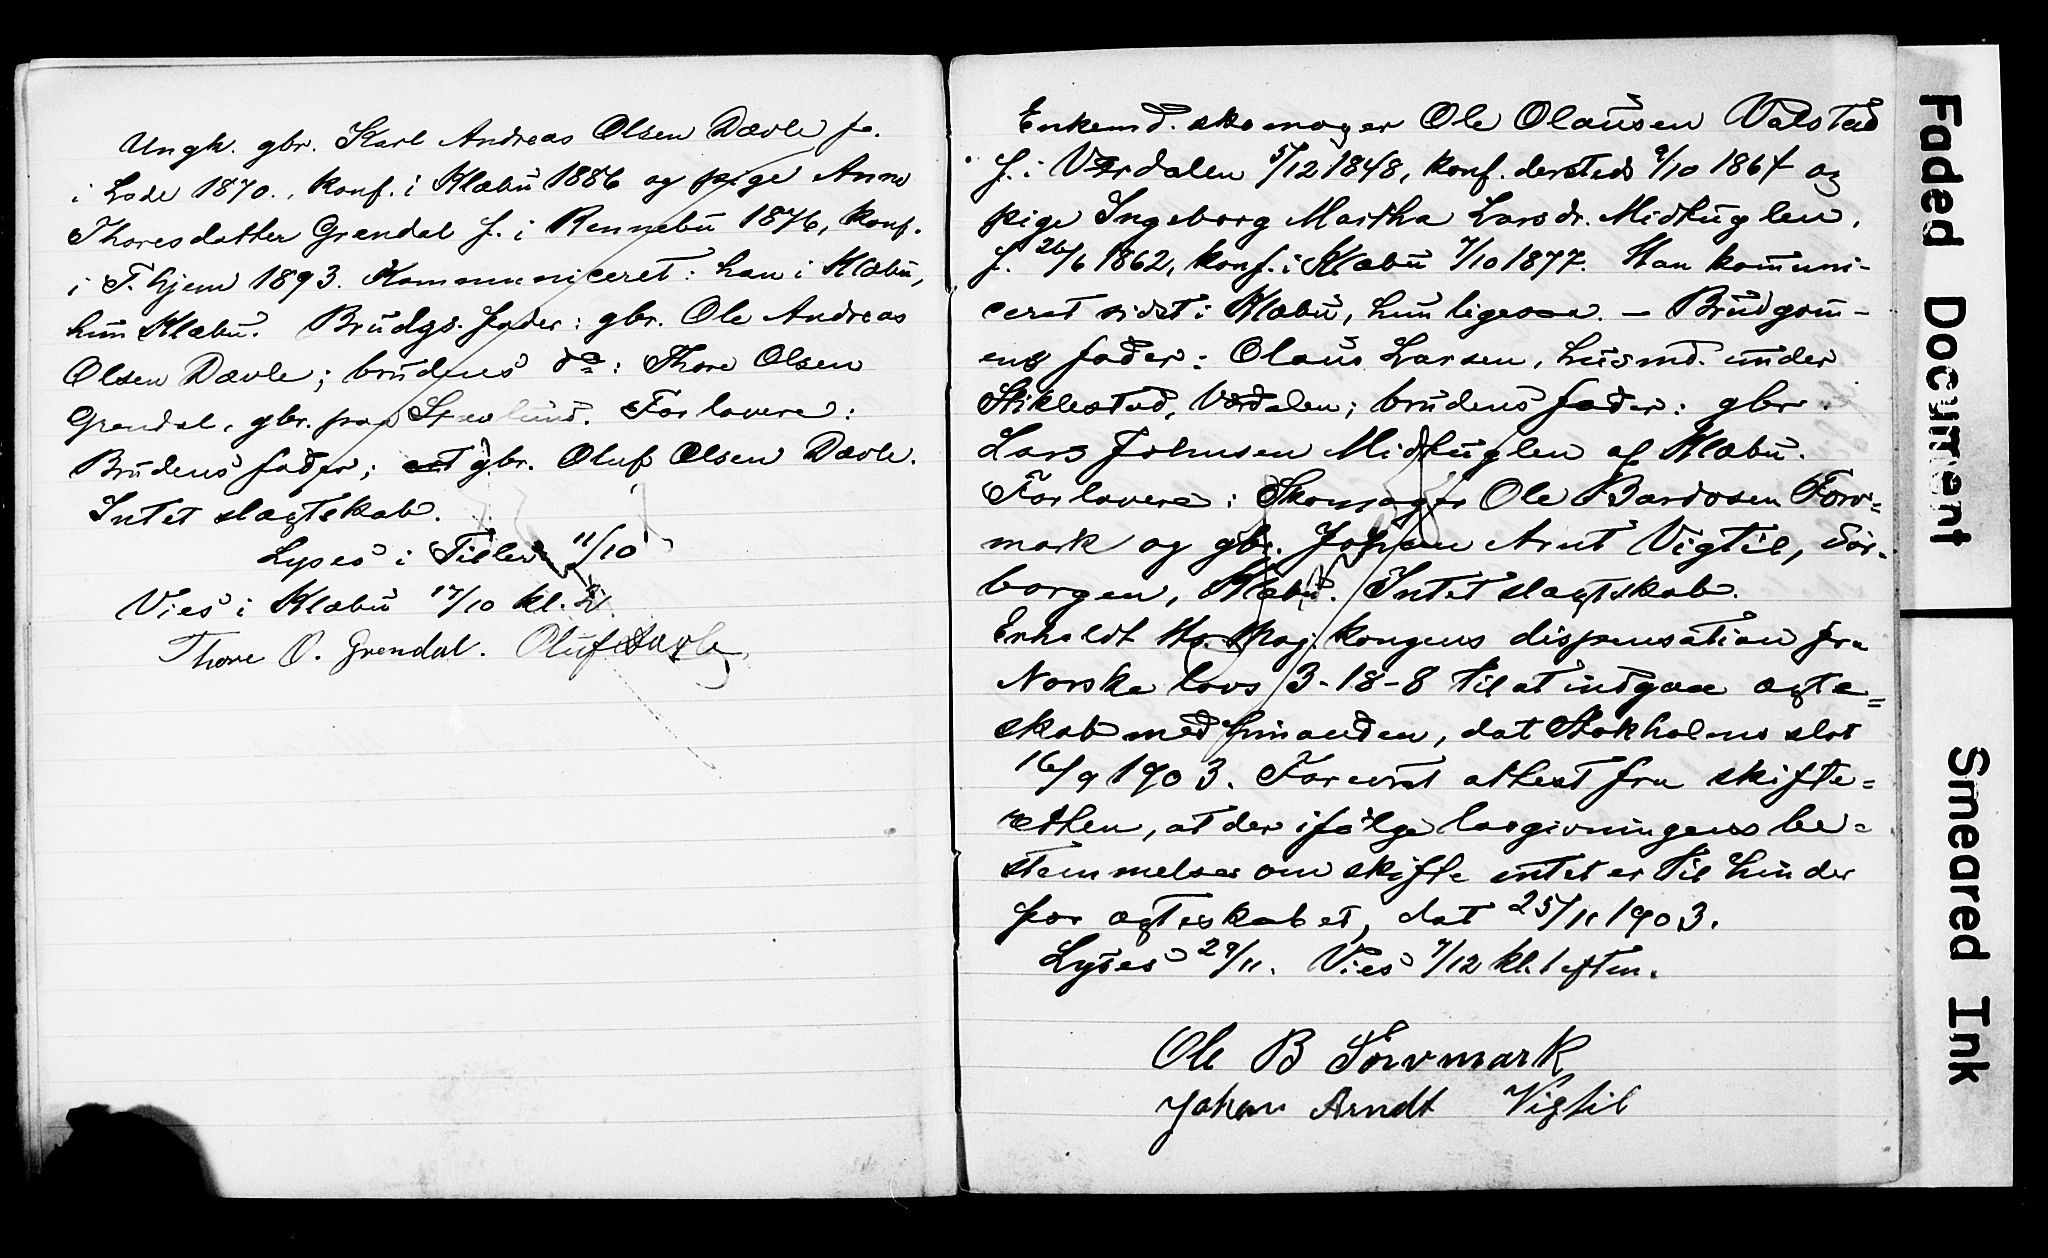 Ungk. gbr. Karl Andreas Olsen Dævle f.
i Lade 1870., konf. i Klæbu 1886 og pige Anne
Thoresdatter Grendal f. i Rennebu 1876, konf.
i T.hjem 1893. Kommuniceret: han i Klæbu,
hun Klæbu. Brudgs. fader: gbr. Ole Andreas
Olsen Dævle; brudens do: Thore Olsen
Grendal, gbr. paa. Forlovere:
Brudens fader; gbr. Oluf Olsen Dævle.
Intet slægtskab.
Lyses i Tiller 11/10
Vies i Klæbu 17/10 kl.
Thore O. Grendal. Oluf Dævle
Enkemd. skomager Ole Olausen Valstad
f. i Værdalen 5/12 1848, konf. dersteds 9/10 1864 og
pige Ingeborg Martha Larsdr. Midtuglen,
f. 26/6 1862, konf. i Klæbu 7/10 1877. Han komuni-
ceret sidst i Klæbu, hun ligesaa. – Brudgom-
ens fader: Olaus Larsen, husmd. under
Stiklestad, Værdalen; brudens fader: gbr.
Lars Johnsen Midtuglen af Klæbu.
Forlovere: Skomager Ole Bardosen Forv=
mark og gbr. Johan Arnt Vigtil, Sör-
borgen, Klæbu. Intet slægtskab.
Erholdt Hs. Maj. kongens dispensation fra
Norske lovs 3-18-8 til at indgaa ægte=
skab med hinanden, dat Stokholms slot
16/9 1903. Forevist attest fra skifte=
retten, at der ifölge lovgivningens be=
stemmelser om skifte intet er til hinder
for ægteskabet, dat 25/11 1903.
Lyses 29/11. Vies 7/12 kl. 1 eftm.
Ole B Forvmark
Johan Arndt Vigtil
Faded Document
Smeared Ink